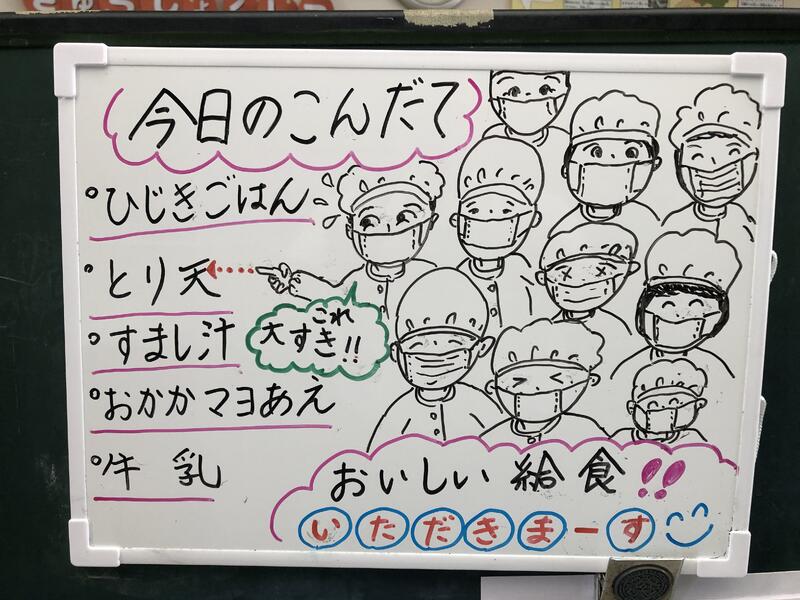 今日のこんだて
ひじきごはん
とり天
これ
大すき!!
すまし汁
おかかマヨあえ
牛乳
おいしい給食!!
いただきまーす